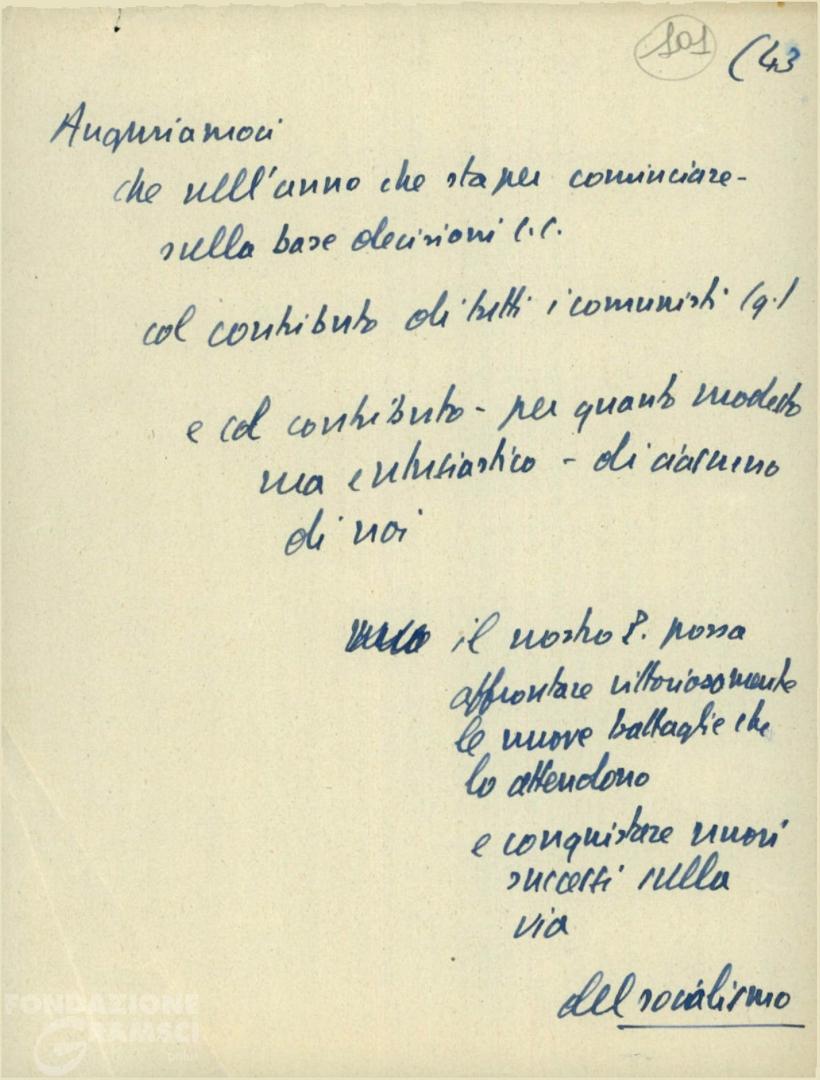 101 (43
Auguriamoci
che nell'anno che sta per cominciare-
sulla base decisioni C.C.
col contributo di tutti i comunisti (q.)
e col contributo - per quanto modesto
ma entusiastico - di ciascuno
di noi
il nostro P. possa
affrontare vittoriosamente
le nuove battaglie che
lo attendono
e conquistare nuovi
successi sulla
via
del socialismo
FONDAZIONE
GRAMSCI